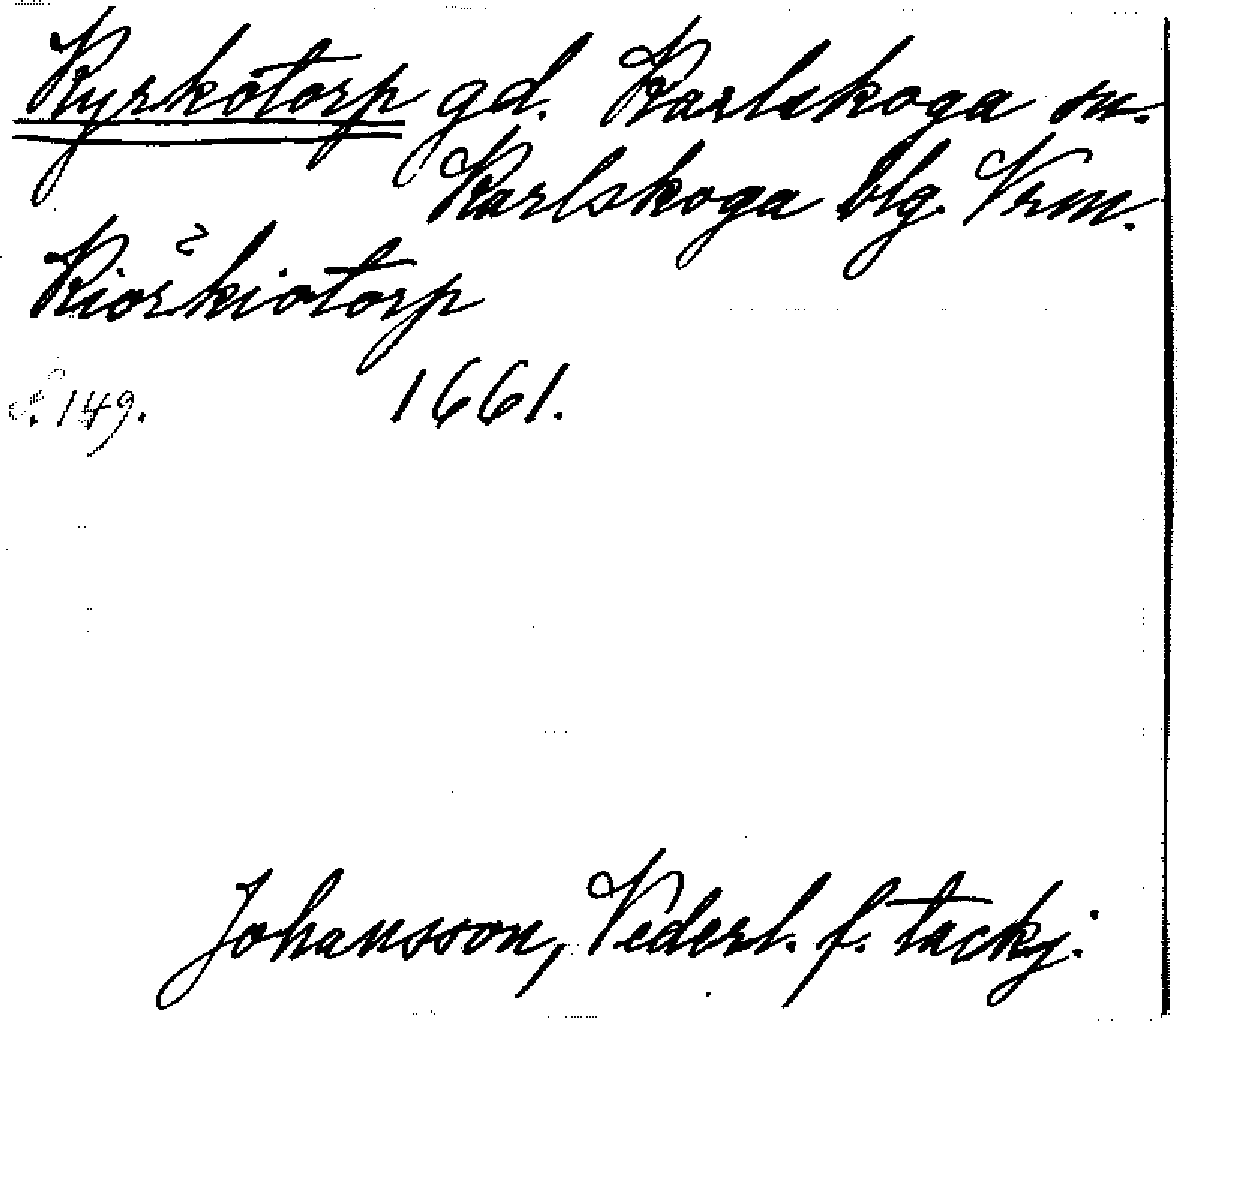 Kyrkotorp gd. Karlskoga sn.
Karlskoga blg. Vrm.
Kiörkiotorp
s. 149. 1661.
Johansson, Vederl. f. tackj.